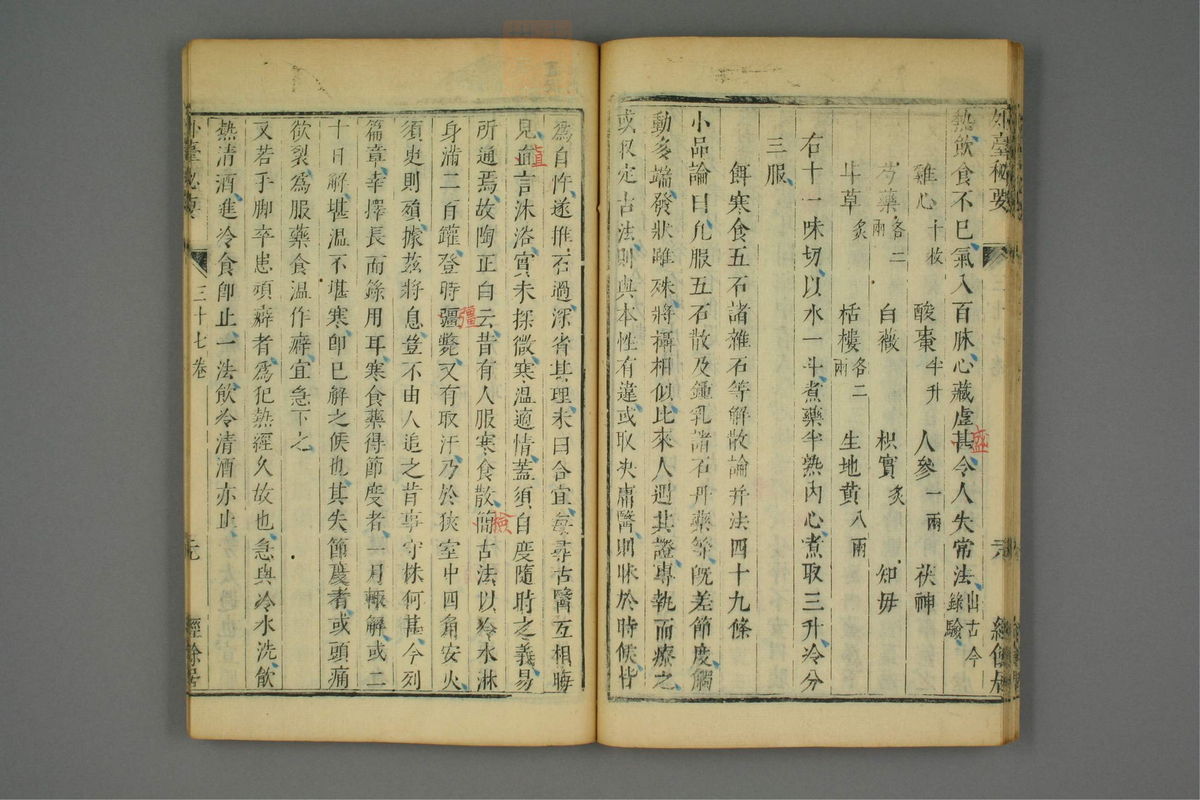 外臺秘要
熱飲食不已氣入百脉心藏虛甚令人失常法出古今錄驗
盛
雞心十枚 酸棗半升 人參一兩 茯神
芍藥各二兩 白薇 枳實炙 知毋
甘草炙 栝樓各二兩 生地黄八兩
右十一味切以水一斗煮藥半熟内心煮取三升冷分
三服
餌寒食五石諸雜石等解散論并法四十九條
小品論曰凢服五石散及鍾乳諸石丹藥等旣差節度觸
動多端發狀雖殊將攝相似比來人遇其證專執而療之
或取定古法則與本性有違或取决庸醫則昧於時候皆
爲自忤遂推石過深省其理未曰合宜每尋古醫互相晦
見直言沐浴實未探微寒溫適情蓋須自度隨時之義易
直
所通焉故陶正白云昔有人服寒食散簡古法以冷水淋
檢
身滿二百鑵登時彊斃又有取汗乃於狹室中四角安火
殭
須臾則殞據玆將息豈不由人追之昔事守株何甚今列
篇章幸擇長而錄用耳寒食藥得節度者一月輙解或二
十日解堪温不堪寒卽已解之候也其失節度者或頭痛
欲裂爲服藥食温作癖宜急下之
又若手脚卒患頑癖者爲犯熱經久故也急與冷水洗飲
熱清酒進冷食卽止一法飲冷清酒亦止
三十七卷
經餘居